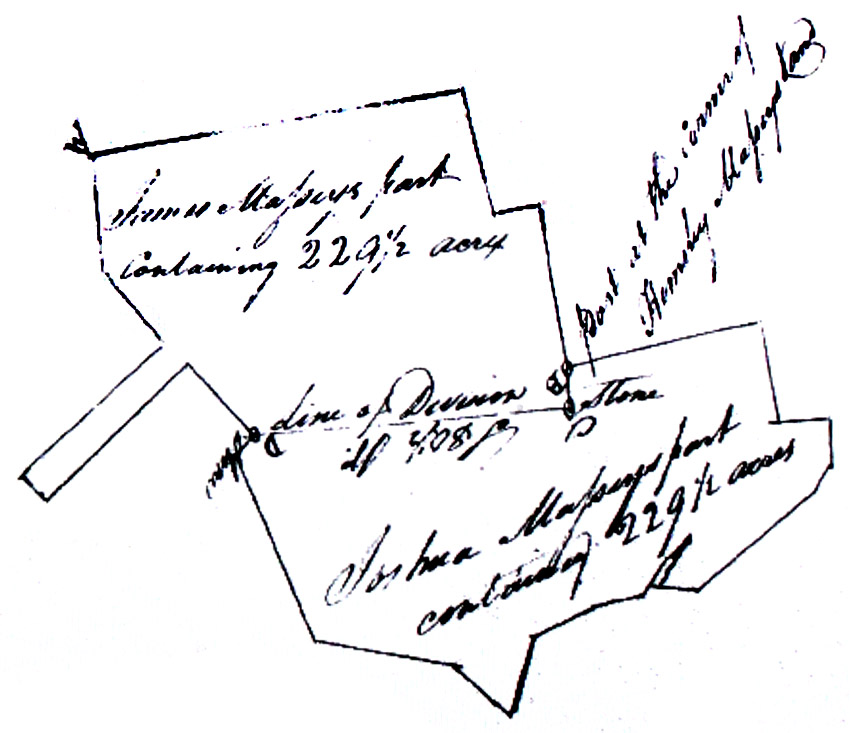 A
James Massey's part
containing 229½ acres
Post at the corner of
Hemsley Massey's Land
B
Line of Division
D
Stone
C
Stone
Joshua Massey's part
containing 229½ acres